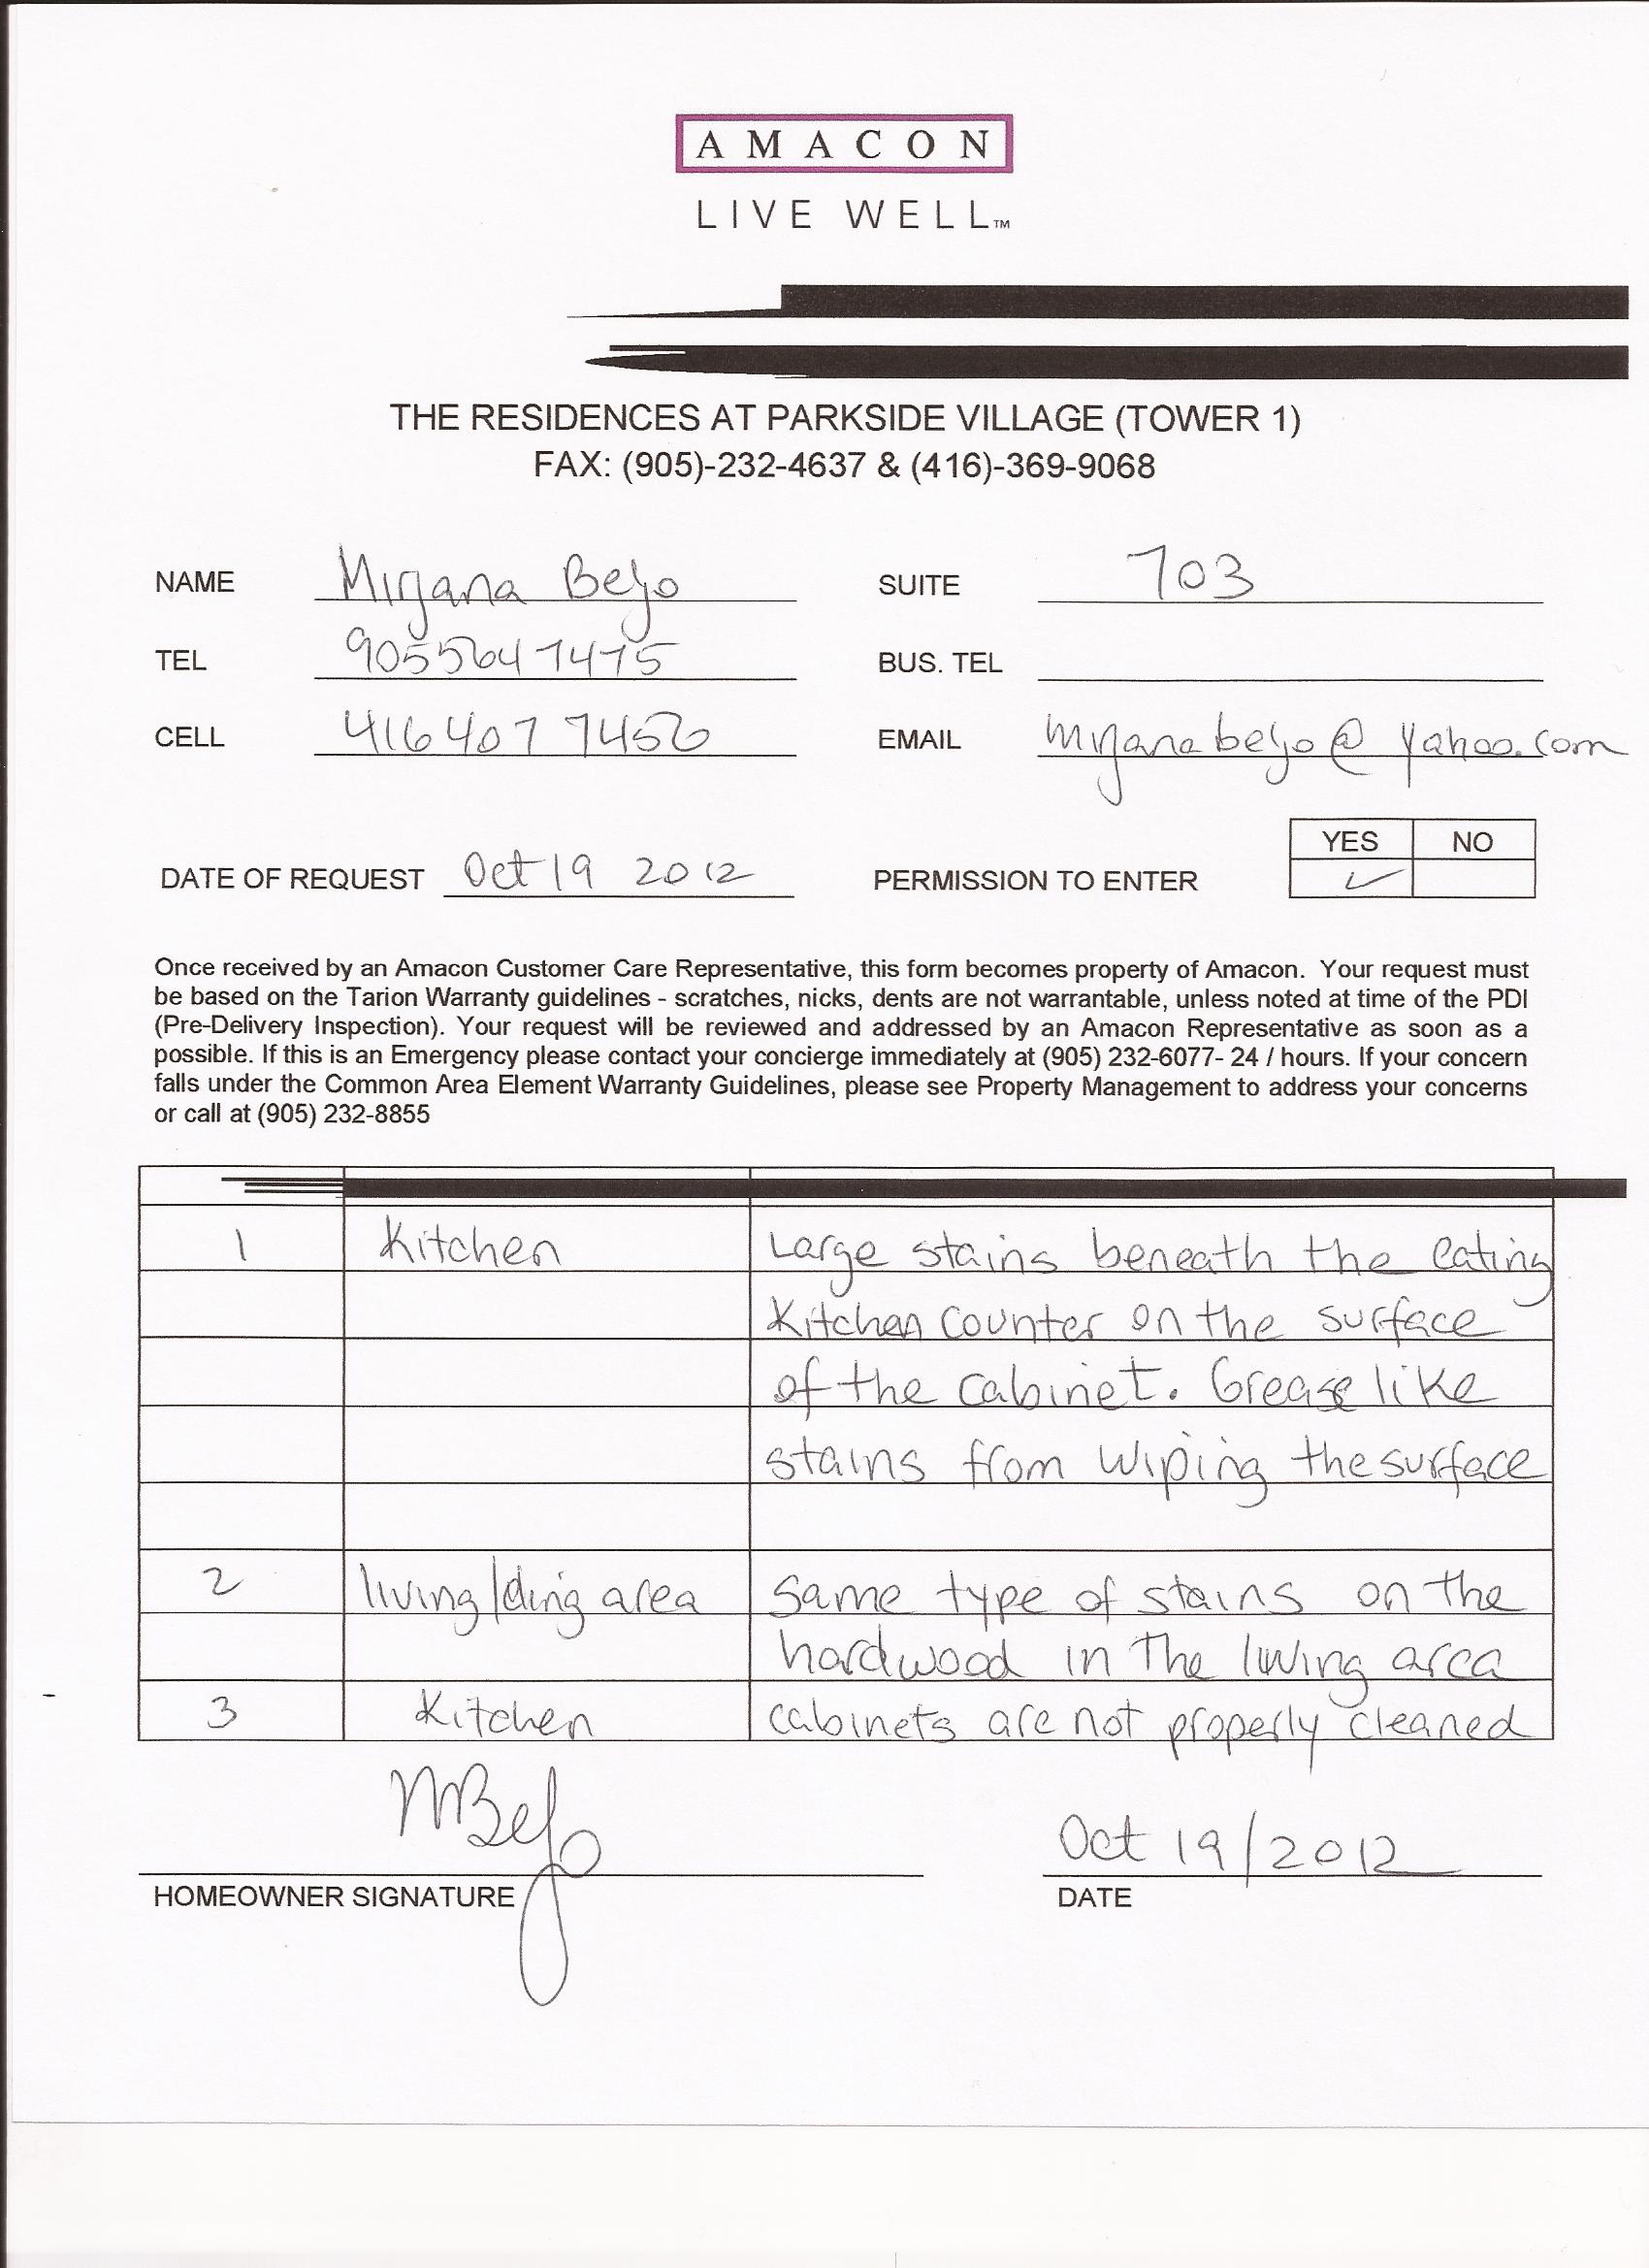 AMACON
LIVE WELL™
THE RESIDENCES AT PARKSIDE VILLAGE (TOWER 1)
FAX: (905)-232-4637 & (416)-369-9068
NAME Mirjana Bejo SUITE 703
TEL 9055647475 BUS. TEL
CELL 416 407 7456 EMAIL mirjanabejo@yahoo.com
YES NO
DATE OF REQUEST Oct 19 2012 PERMISSION TO ENTER ✓
Once received by an Amacon Customer Care Representative, this form becomes property of Amacon. Your request must
be based on the Tarion Warranty guidelines - scratches, nicks, dents are not warrantable, unless noted at time of the PDI
(Pre-Delivery Inspection). Your request will be reviewed and addressed by an Amacon Representative as soon as a
possible. If this is an Emergency please contact your concierge immediately at (905) 232-6077- 24 / hours. If your concern
falls under the Common Area Element Warranty Guidelines, please see Property Management to address your concerns
or call at (905) 232-8855
1 Kitchen Large stains beneath the eating
Kitchen counter on the surface
of the cabinet. Grease like
stains from wiping the surface
2 living/ding area same type of stains on the
hardwood in the living area
3 Kitchen cabinets are not properly cleaned
MBejo Oct 19/2012
HOMEOWNER SIGNATURE DATE